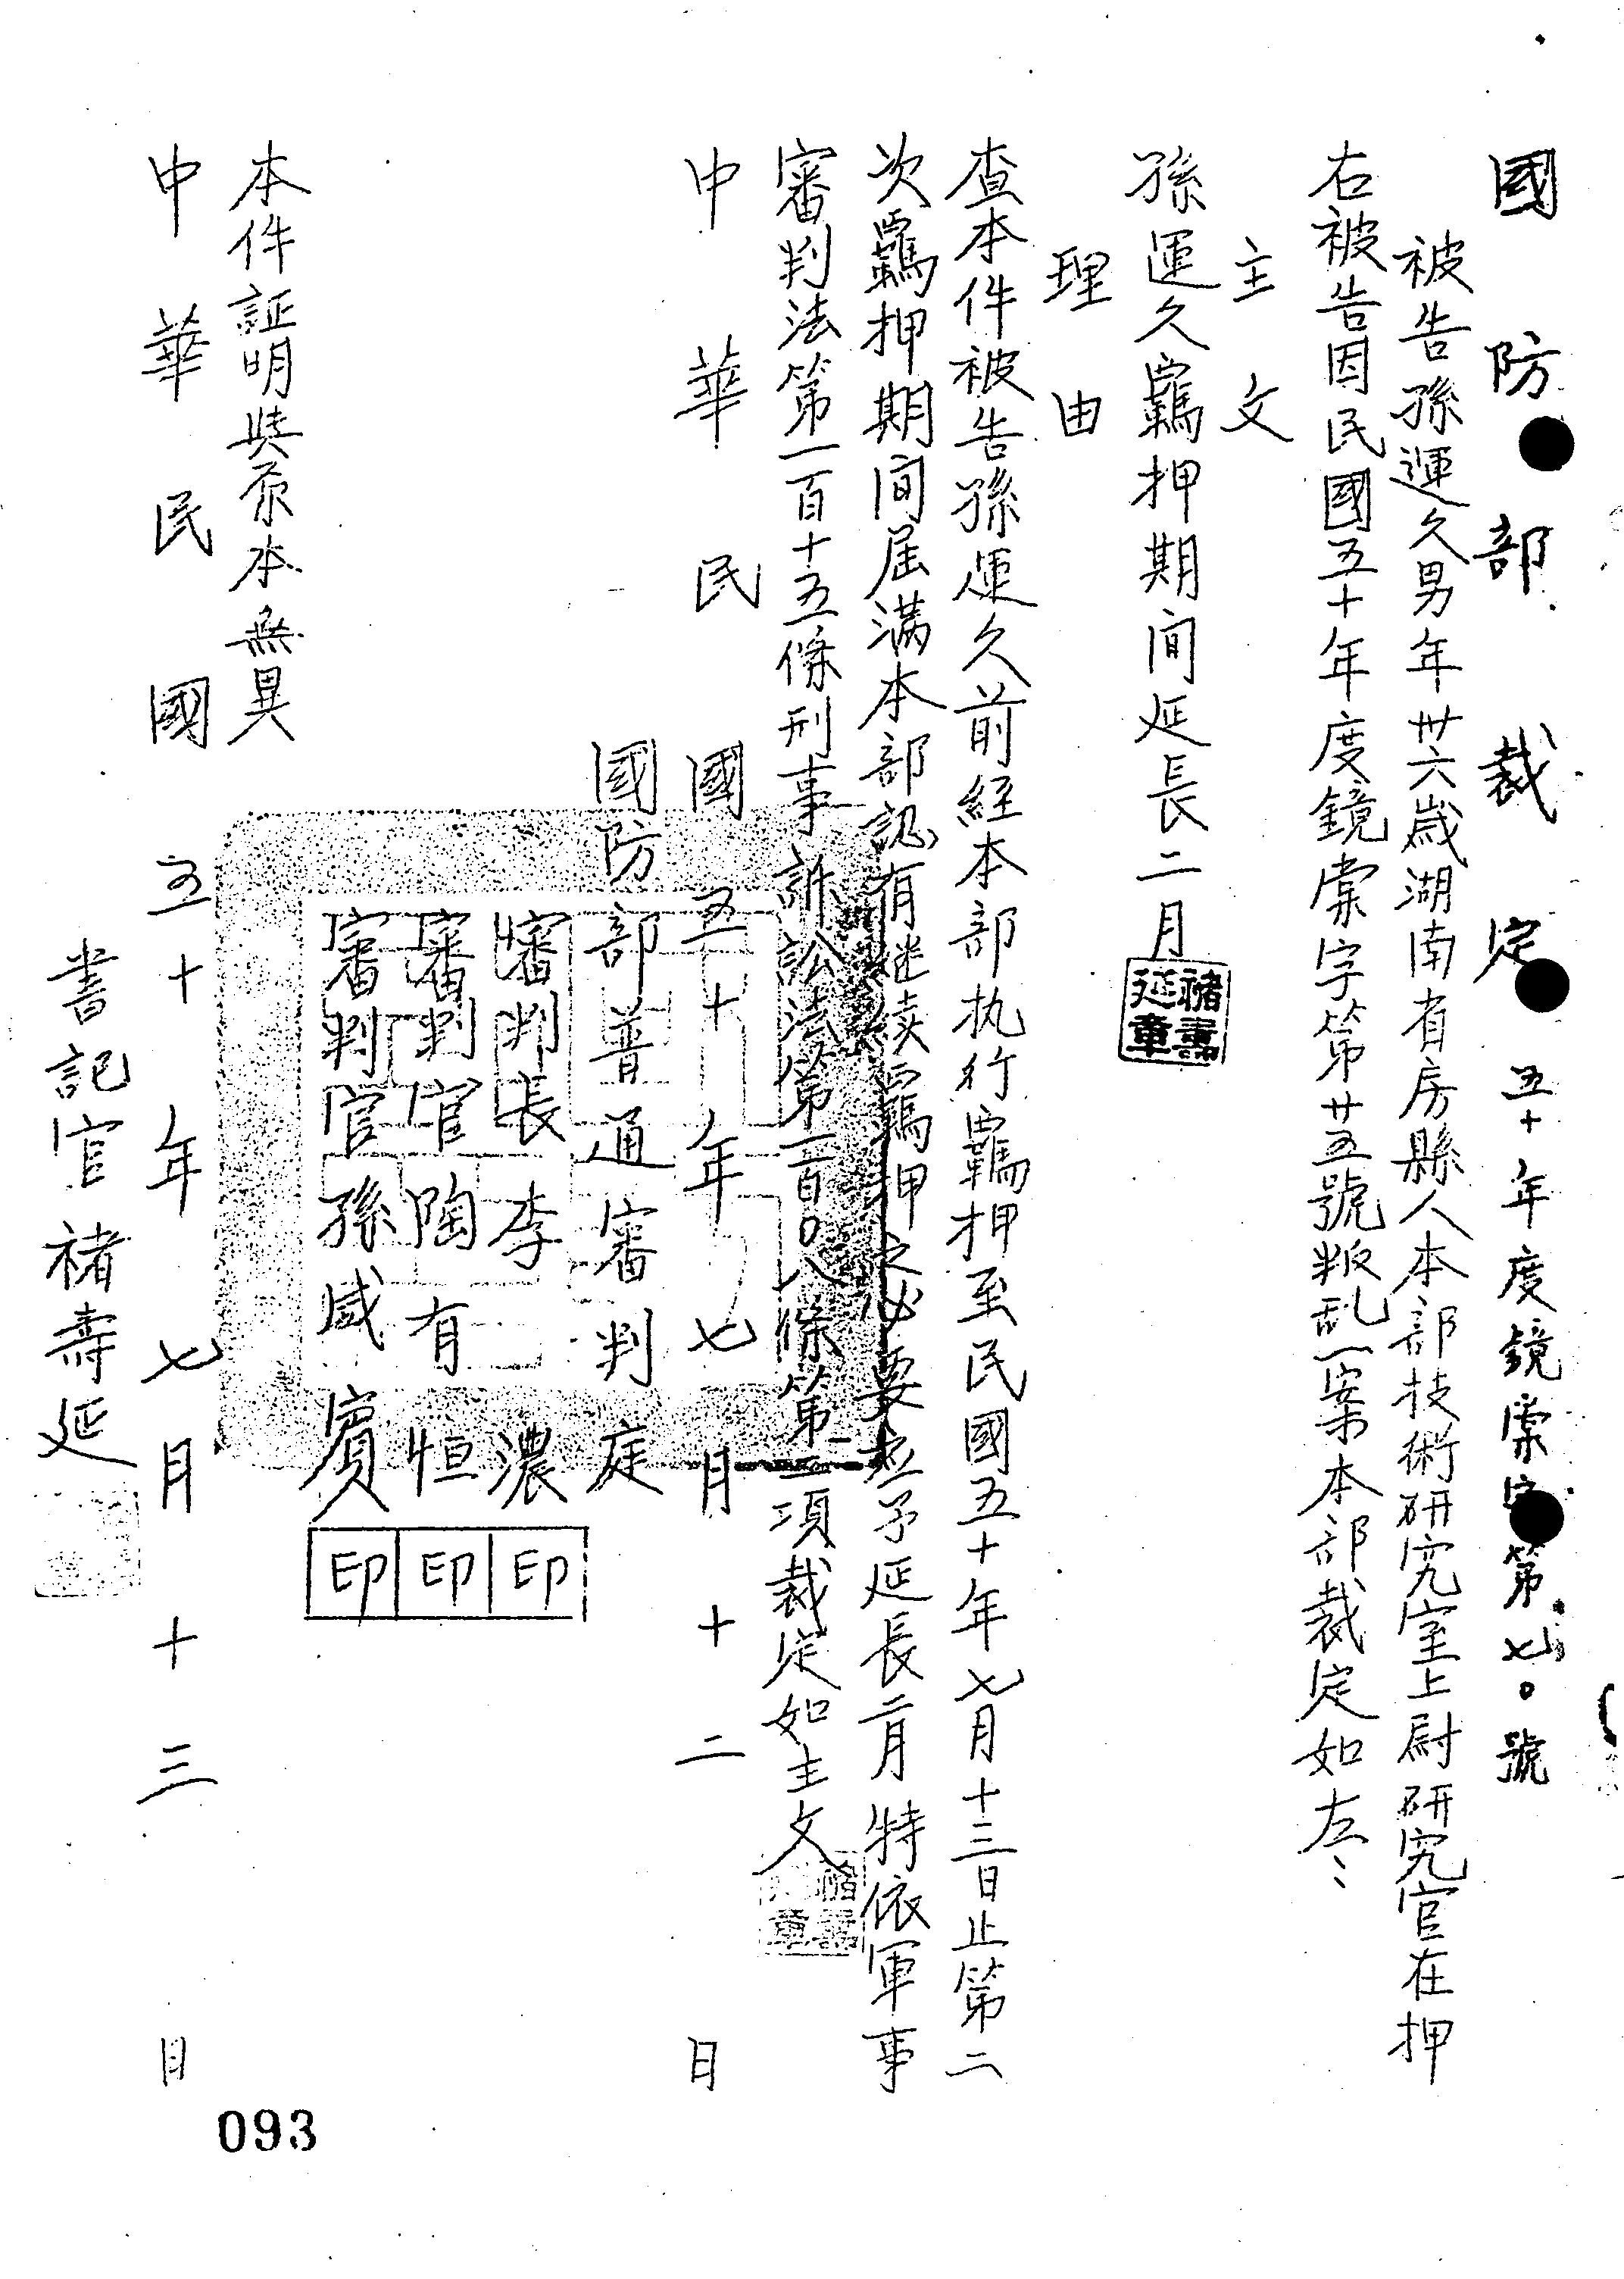 國防部裁定 五十年度鏡棠字第七〇號
被告孫運久男年卅六歲湖南省房縣人本部技術研究室上尉研究官在押
右被告因民國五十年度鏡棠字第廿五號叛乱一案本部裁定如左：
主文
孫運久羈押期间延長二月
褚壽延章
理由
查本件被告孫運久前経本部执行羈押至民國五十年七月十三日止第二
次羈押期间屆满本部認有继续羈押之必要应予延長二月特依軍事
審判法第一百十五條刑事訴訟法第一百〇八條第二項裁定如主文
中華民國五十年七月十二日
國防部普通審判庭
審判長李濃 印
審判官陶有恒 印
審判官孫威賓 印
本件証明與原本無異
中華民國五十年七月十三日
書記官褚壽延
093